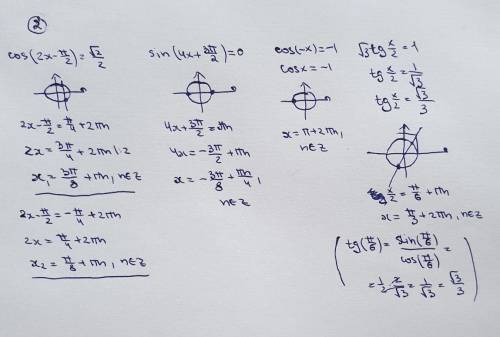 2
cos(2x-π/2)=√2/2
2x-π/2=π/4+2πn
2x=3π/4+2πn |:2
x₁=3π/8+πn, n∈Z
2x-π/2=-π/4+2πn
2x=π/4+2πn
x₂=π/8+πn, n∈Z
sin(4x+3π/2)=0
4x+3π/2=πn
4x=-3π/2+πn
x=-3π/8+πn/4,
n∈Z
cos(-x)=-1
cosx=-1
x=π+2πn,
n∈Z
√3tg x/2=1
tg x/2=1/√3
tg x/2=√3/3
x/2=π/6+πn
x=π/3+2πn, n∈Z
(tg(π/6)=sin(π/6)/cos(π/6)=
=1/2·2/√3=1/√3=√3/3)